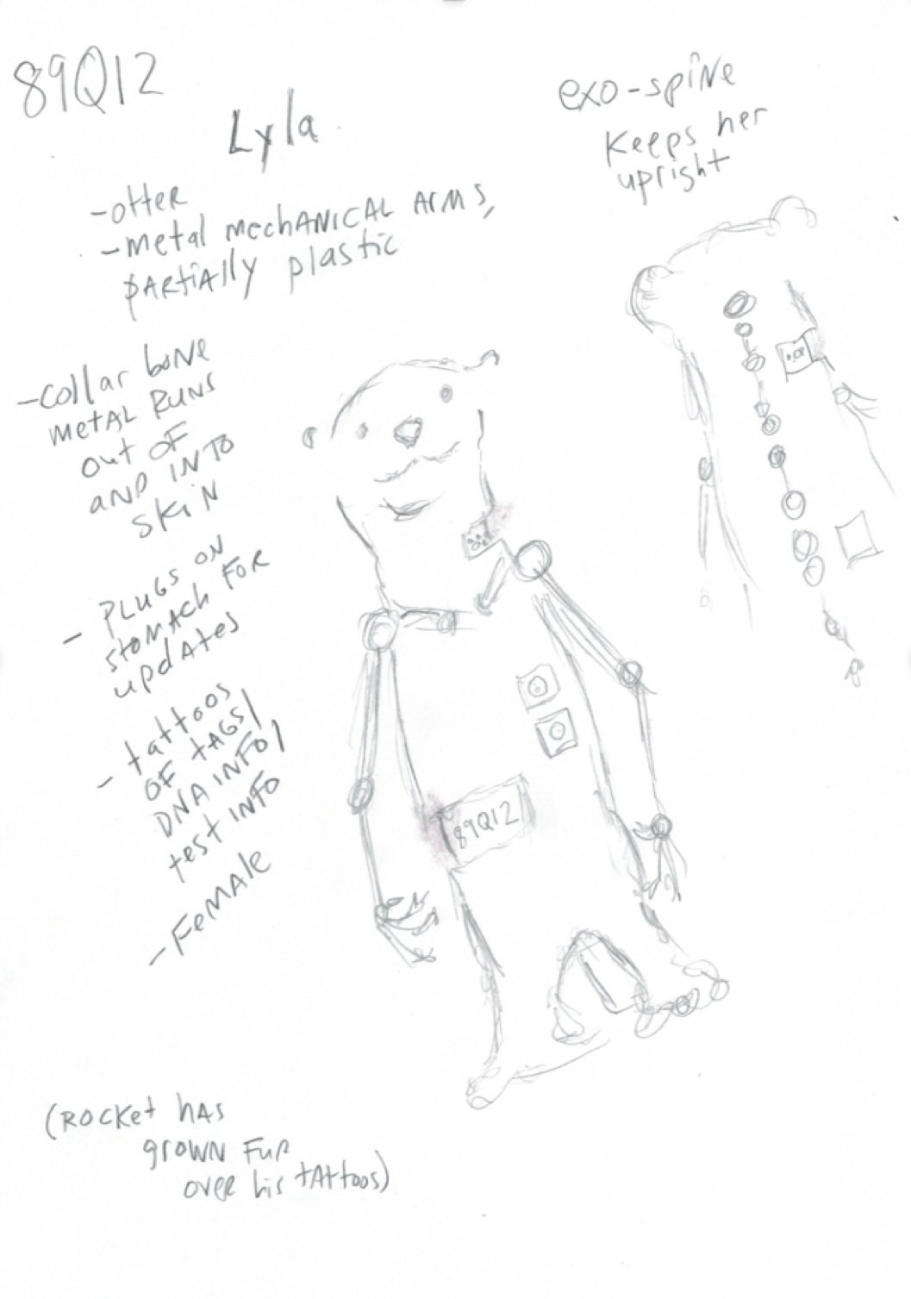 89Q12
Lyla
exo-spine
Keeps her
upright
-otter
-metal mechANICAL ARMS,
pARtiAlly plastic
-collar boNe
metAL RUNS
out oF
AND INTO
SKiN
- PLUGS ON
stomAch FOR
updAtes
- tattoos
OF tAGS/
DNA INFO/
test INFO
-FeMAle
89Q12
(ROCKet hAS
grOWN FUR
oveR his tAttoos)